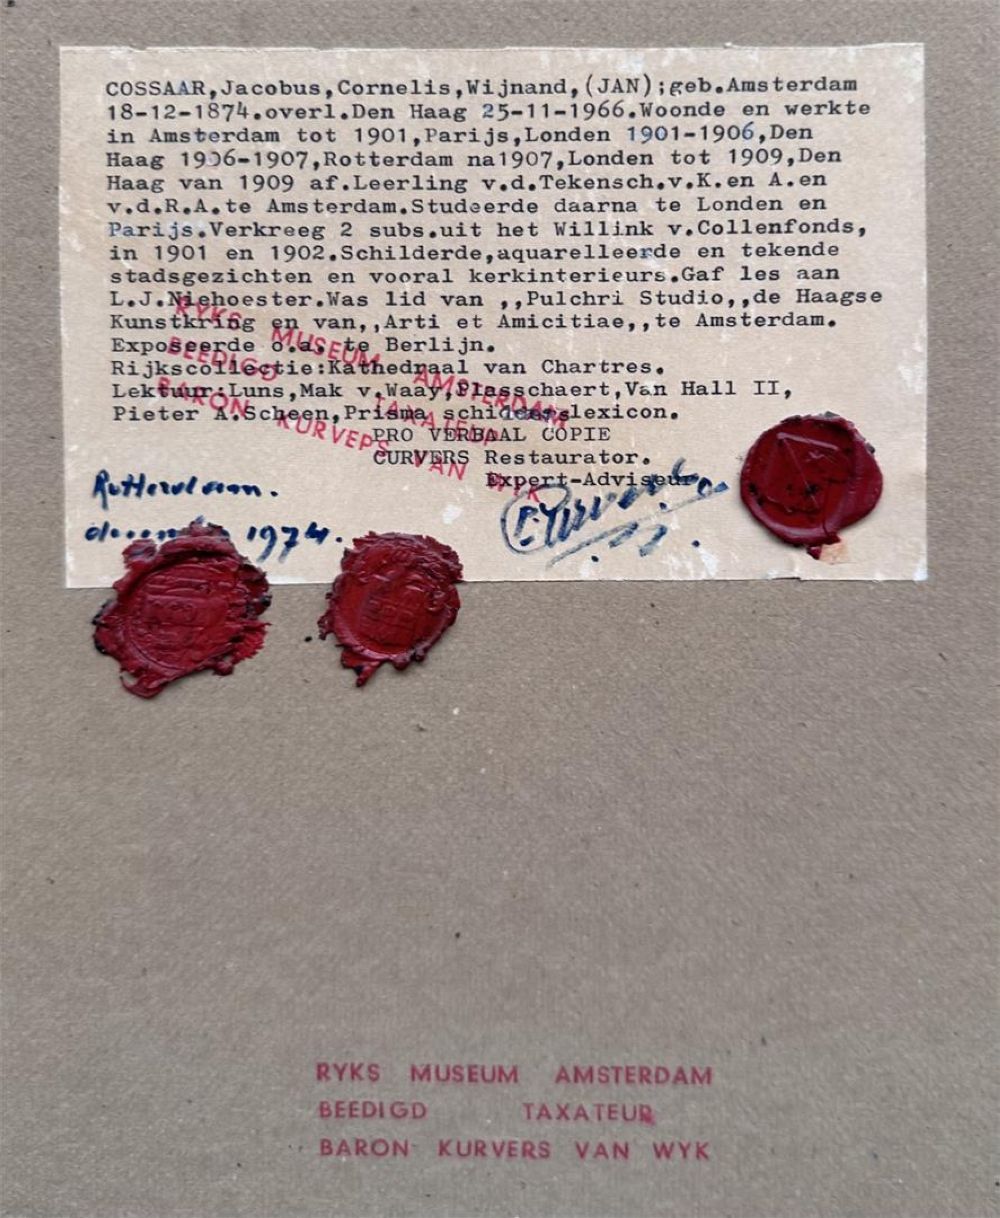 COSSAAR,Jacobus,Cornelis,Wijnand,(JAN);geb.Amsterdam
18-12-1874.overl.Den Haag 25-11-1966.Woonde en werkte
in Amsterdam tot 1901,Parijs,Londen 1901-1906,Den
Haag 1906-1907,Rotterdam na1907,Londen tot 1909,Den
Haag van 1909 af.Leerling v.d.Tekensch.v.K.en A.en
v.d.R.A.te Amsterdam.Studeerde daarna te Londen en
Parijs.Verkreeg 2 subs.uit het Willink v.Collenfonds,
in 1901 en 1902.Schilderde,aquarelleerde en tekende
stadsgezichten en vooral kerkinterieurs.Gaf les aan
L.J.Niehoester.Was lid van ,,Pulchri Studio,,de Haagse
Kunstkring en van,,Arti et Amicitiae,,te Amsterdam.
Exposeerde o.a. te Berlijn.
Rijkscollectie:Kathedraal van Chartres.
Lektuur:Luns,Mak v.Waay,Plasschaert,Van Hall II,
Pieter A.Scheen,Prisma schilderslexicon.
PRO VERBAAL COPIE
CURVERS Restaurator.
Expert-Adviseur.
RYKS MUSEUM AMSTERDAM
BEEDIGD TAXATEUR
BARON KURVERS VAN WYK
Rotterdam.
december 1974.
RYKS MUSEUM AMSTERDAM
BEEDIGD TAXATEUR
BARON KURVERS VAN WYK